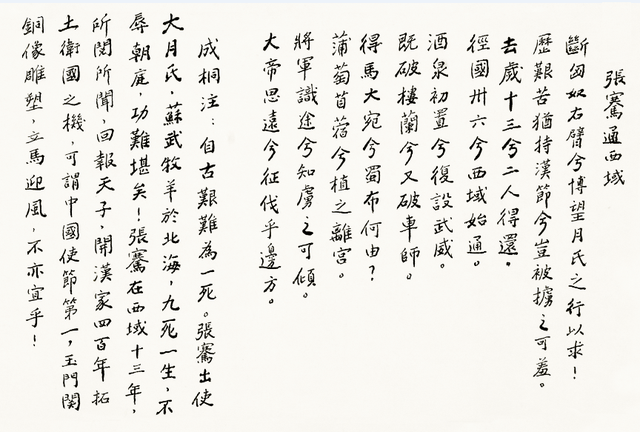 張騫通西域
斷匈奴右臂兮博望月氏之行以求！
歷艱苦猶持漢節兮豈被擄之可羞。
去歲十三兮二人得還。
徑國卅六兮西域始通。
酒泉初置兮復設武威。
既破樓蘭兮又破車師。
得馬大宛兮蜀布何由？
蒲萄苜蓿兮植之離宮。
將軍識途兮知虜之可傾。
大帝思遠兮征伐乎邊方。
成桐注：自古艱難為一死。張騫出使
大月氏，蘇武牧羊於北海，九死一生，不
辱朝庭，功難堪矣！張騫在西域十三年，
所閱所聞，回報天子，開漢家四百年拓
土衛國之機，可謂中國使節第一，玉門関
銅像雕塑，立馬迎風，不亦宜乎！